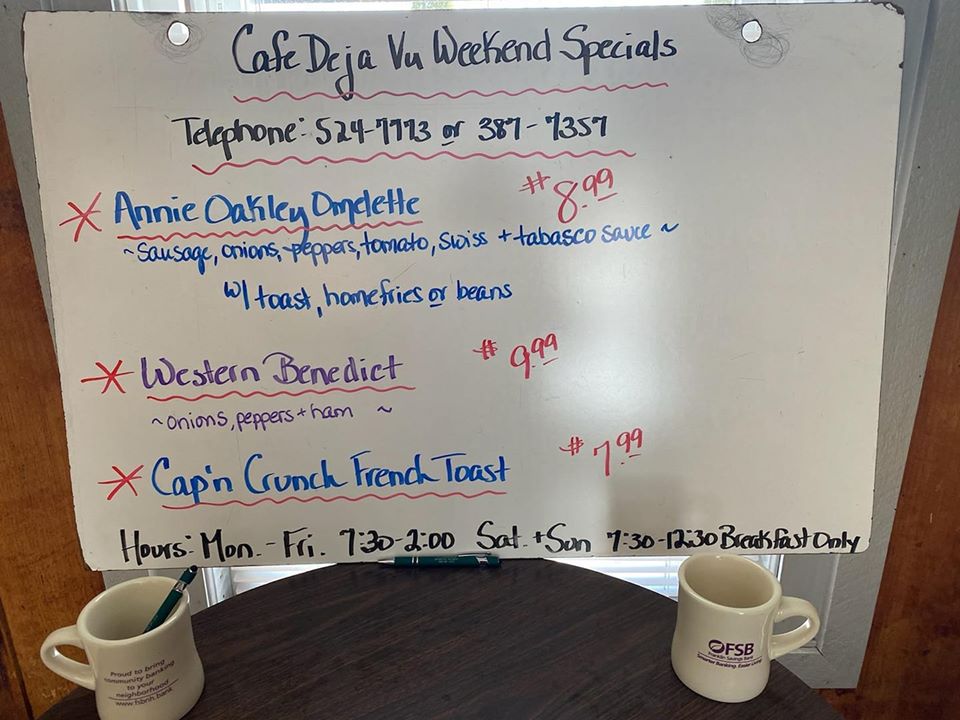 Cafe Deja Vu Weekend Specials
Telephone: 524-7773 or 387-7357
* Annie Oakley Omelette #8.99
~ Sausage, onions, peppers, tomato, swiss + tabasco sauce ~
w/ toast, homefries or beans
* Western Benedict #9.99
~ onions, peppers + ham ~
* Cap'n Crunch French Toast #7.99
Hours: Mon. - Fri. 7:30-2:00 Sat. + Sun 7:30-12:30 Breakfast Only
Proud to bring
community banking
to your
neighborhood
www.fsbnh.bank
FSB
Franklin Savings Bank
Smarter Banking. Easier Living.